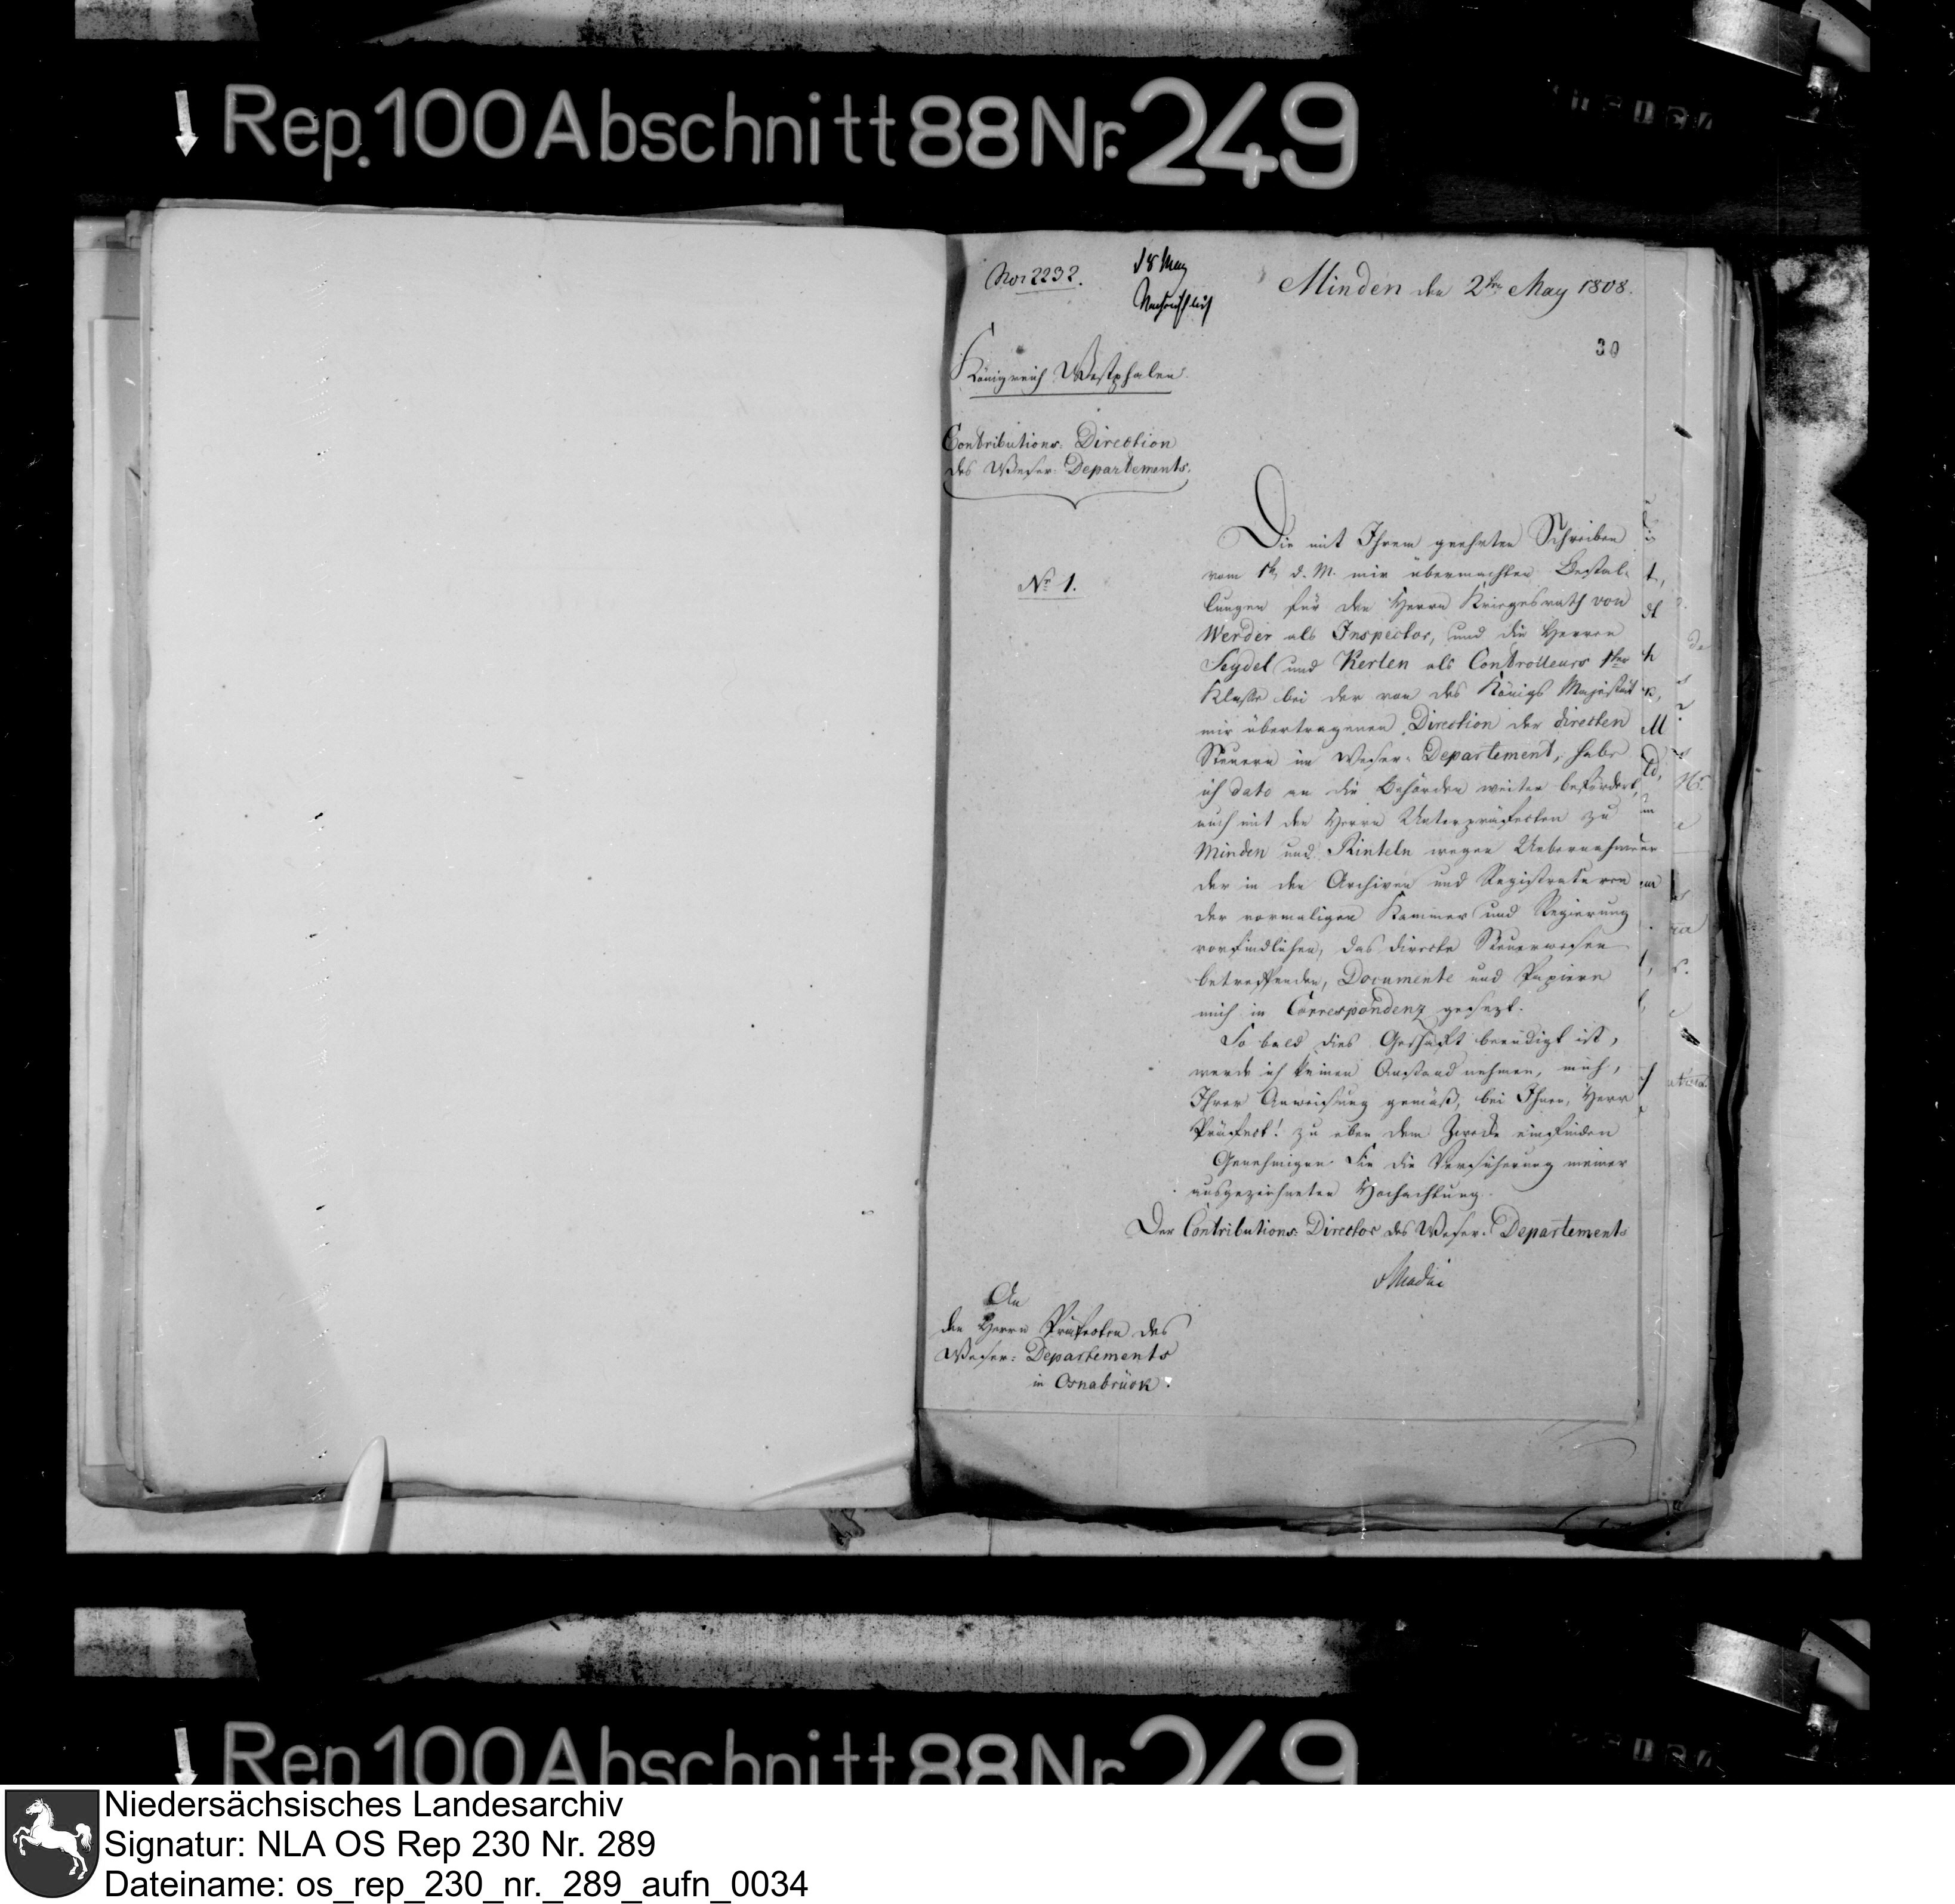 Rep. 100 Abschnitt 88 Nr. 249
Nor 2232.
18 May
Minden den 2ten May 1808.
30
Königreich Westphalen
Contributions-Direction
des Weser-Departements.
Nr 1.
Die mit Ihrem geehrten Schreiben
vom 1ten d. M. mir übermachten Bestal-
lungen für den Herrn Kriegesrath von
Werder als Inspector, und die Herren
Seydel und Kerlen als Controlleurs 1ter
Klasse bei der von des Königs Majestät
mir übertragenen Direction der directen
Steuern im Weser-Departement, habe
ich dato an die Behörden weiter befördert,
auch mit den Herrn Unterpräfecten zu
Minden und Rinteln wegen Uebernahme
der in den Archiven und Registraturen
der vormaligen Kammer und Regierung
vorfindlichen, das directe Steuerwesen
betreffenden, Documente und Papiere
mich in Correspondenz gesezt.
So bald dies Geschäft beendigt ist,
werde ich keinen Anstand nehmen, mich,
Ihrer Anweisung gemäß, bei Ihnen, Herr
Präfect! zu eben dem Zwecke einfinden
Genehmigen Sie die Versicherung meiner
ausgezeichneten Hochachtung.
Der Contributions-Director des Weser-Departements
An
den Herrn Präfecten des
Weser-Departements
in Osnabrück.
Rep. 100 Abschnitt 88 Nr. 249
Niedersächsisches Landesarchiv
Signatur: NLA OS Rep 230 Nr. 289
Dateiname: os_rep_230_nr._289_aufn_0034